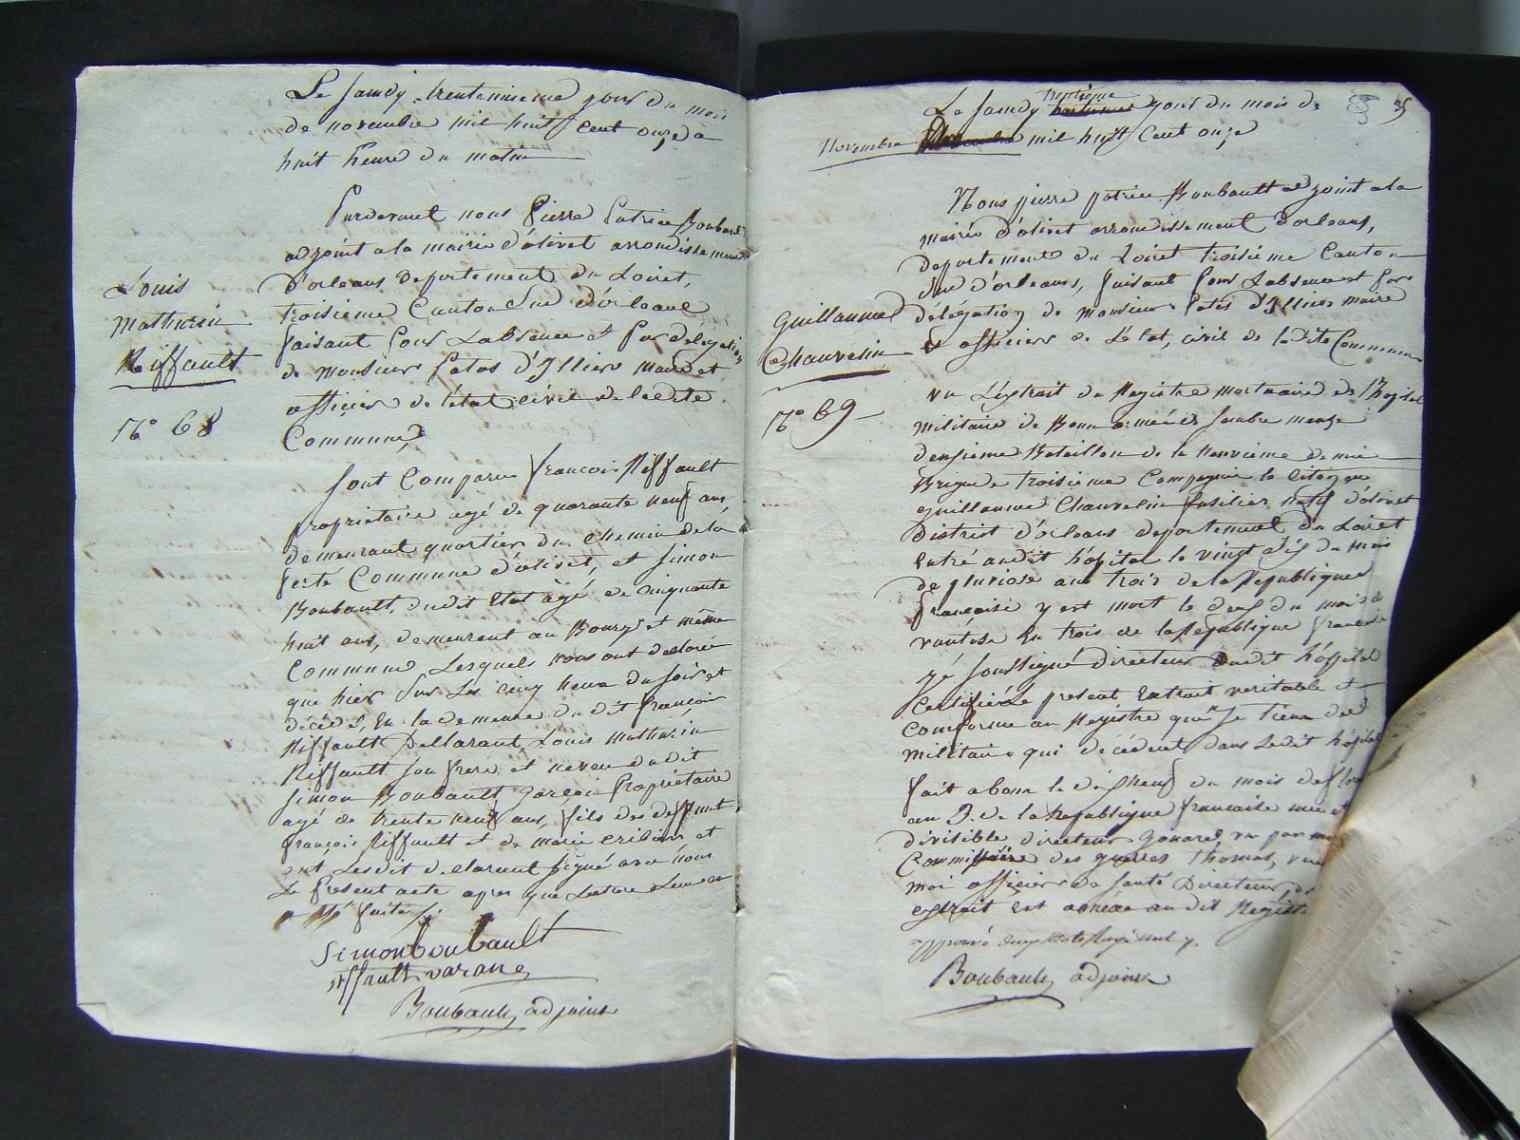 Le samdy trentenieme jour du mois
de novembre mil huit cent onze a
huit heure du matin
Pardevant nous Pierre Patrice Boubault
adjoint a la mairie d'olivet arrondissement
d'orleans departement du Loiret,
troisieme Canton Sud d'orleans
faisant pour L'absence et par delegation
de monsieur Patas d'Illiers maire et
officier de l'état civil de ladite
Commune
Louis
Mathurin
Riffault
N° 68
Sont Comparu françois Riffault
proprietaire agé de quarante neuf ans
demeurant quartier du chemin de la
ferté Commune d'olivet, et Simon
Boubault, dudit Etat âgé de cinquante
huit ans, demeurant au Bourg et même
Commune Lesquels nous ont declaré
que hier sur les cinq heure du soir est
décédé, En la demeure du dit françois
Riffault Declarant, Louis Mathurin
Riffault son frere et neveu dudit
Simon Boubault garçon Propriétaire
agé de trente neuf ans, fils des deffunt
françois Riffault et de marie et
ont Lesdit declarant signé avec nous
Le present acte apres que Lecture Leur en
a été faite
Simon boubault
riffault varanne
Boubault, adjoint
35
Le Samdy trentieme jour du mois de
novembre mil huit Cent onze
Nous pierre patrice Boubault adjoint a la
mairie d'olivet arrondissement d'orleans,
departement du Loiret troisieme Canton
Sud d'orleans, faisant pour Labsence et par
délégation de monsieur Patas d'Illiers maire
et officier de L'état, civil de la dite Commune
Guillaume
Chauvelin
N° 69
vu L'extrait du Registre mortuaire de l'hopital
militaire de Bonn armée de Sambre meuse
deuxieme Bataillon de la neuvieme demie
Brigade troisieme Compagnie le citoyen
guillaume Chauvelin fusilier natif d'olivet
District d'orleans departement du Loiret
Entré audit hôpital le vingt dix du mois
de pluviose an trois de la Republique
française y est mort le deux du mois de
vantose En trois de la Republique francaise
je soussigné directeur dudit hôpital
Certifié Le present Extrait veritable et
Conforme au Registre que je tiens des
militaire qui decédent dans Ledit hôpital
fait a bonn le dix neuf du mois de
an 3. de la Republique francaise une et
divisible directeur gouard, vu par moi
Commissaire des guerres thomas, vu
moi officier de santé Directeur,
extrait Est annexé au dit Registre
approuvé
Boubault, adjoint